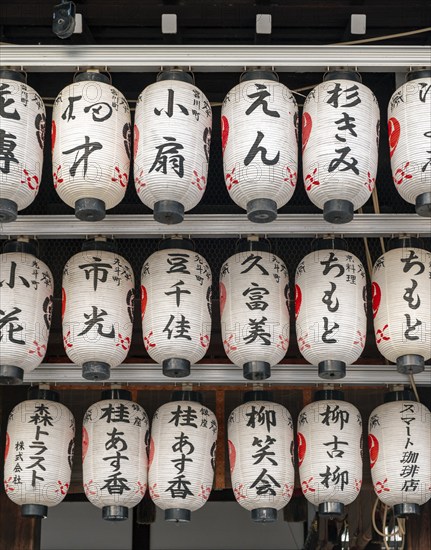 畑中
宮川町
小扇
えん
杉きみ
小花
市光
豆千佳
久富美
料理
ちもと
ちもと
森トラスト
株式会社
銀座
桂あす香
銀座
桂あす香
柳笑会
柳古柳
スマート珈琲店